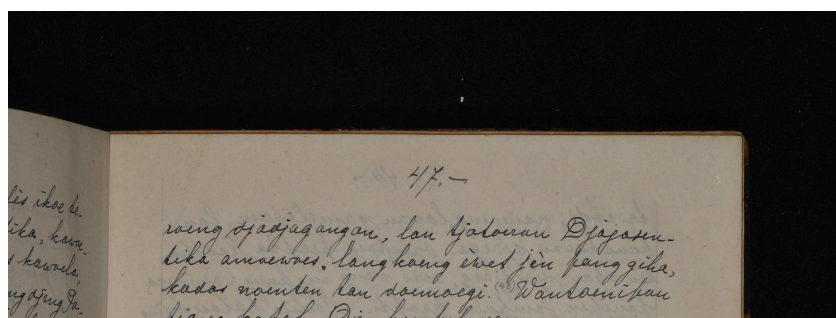 lès ikoe te-
tika, kawoe-
s kawoela,
ngdjeng Pa-
47.-
roeng djadjagangan, lan tjatoeran Djajasen-
tika amoewoes, langkoeng èwet jèn panggiha,
kados noenten tan doemoegi. (48) Wantoenipoen